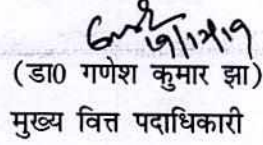 19/12/19
(डा0 गणेश कुमार झा)
मुख्य वित्त पदाधिकारी